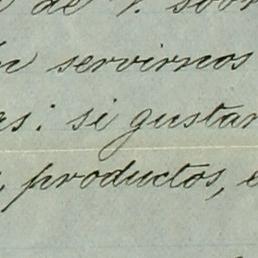 de V. sobr
n servirnos
as: si gustar
, productos, e